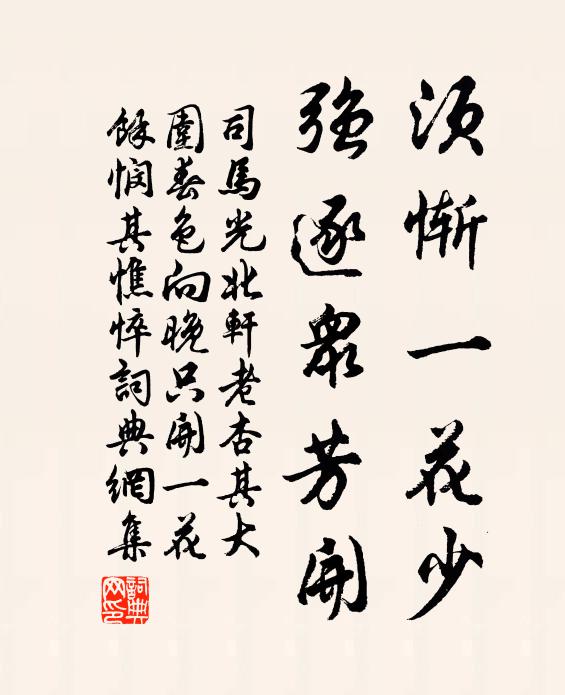 須慚一花少
強逐眾芳開
司馬光北軒老杏其大
圍春色向晚只開一花
餘憫其憔悴詞典網集
詞典网印